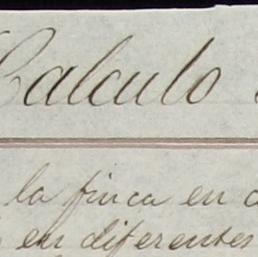 Calculo
la finca en
en diferentes